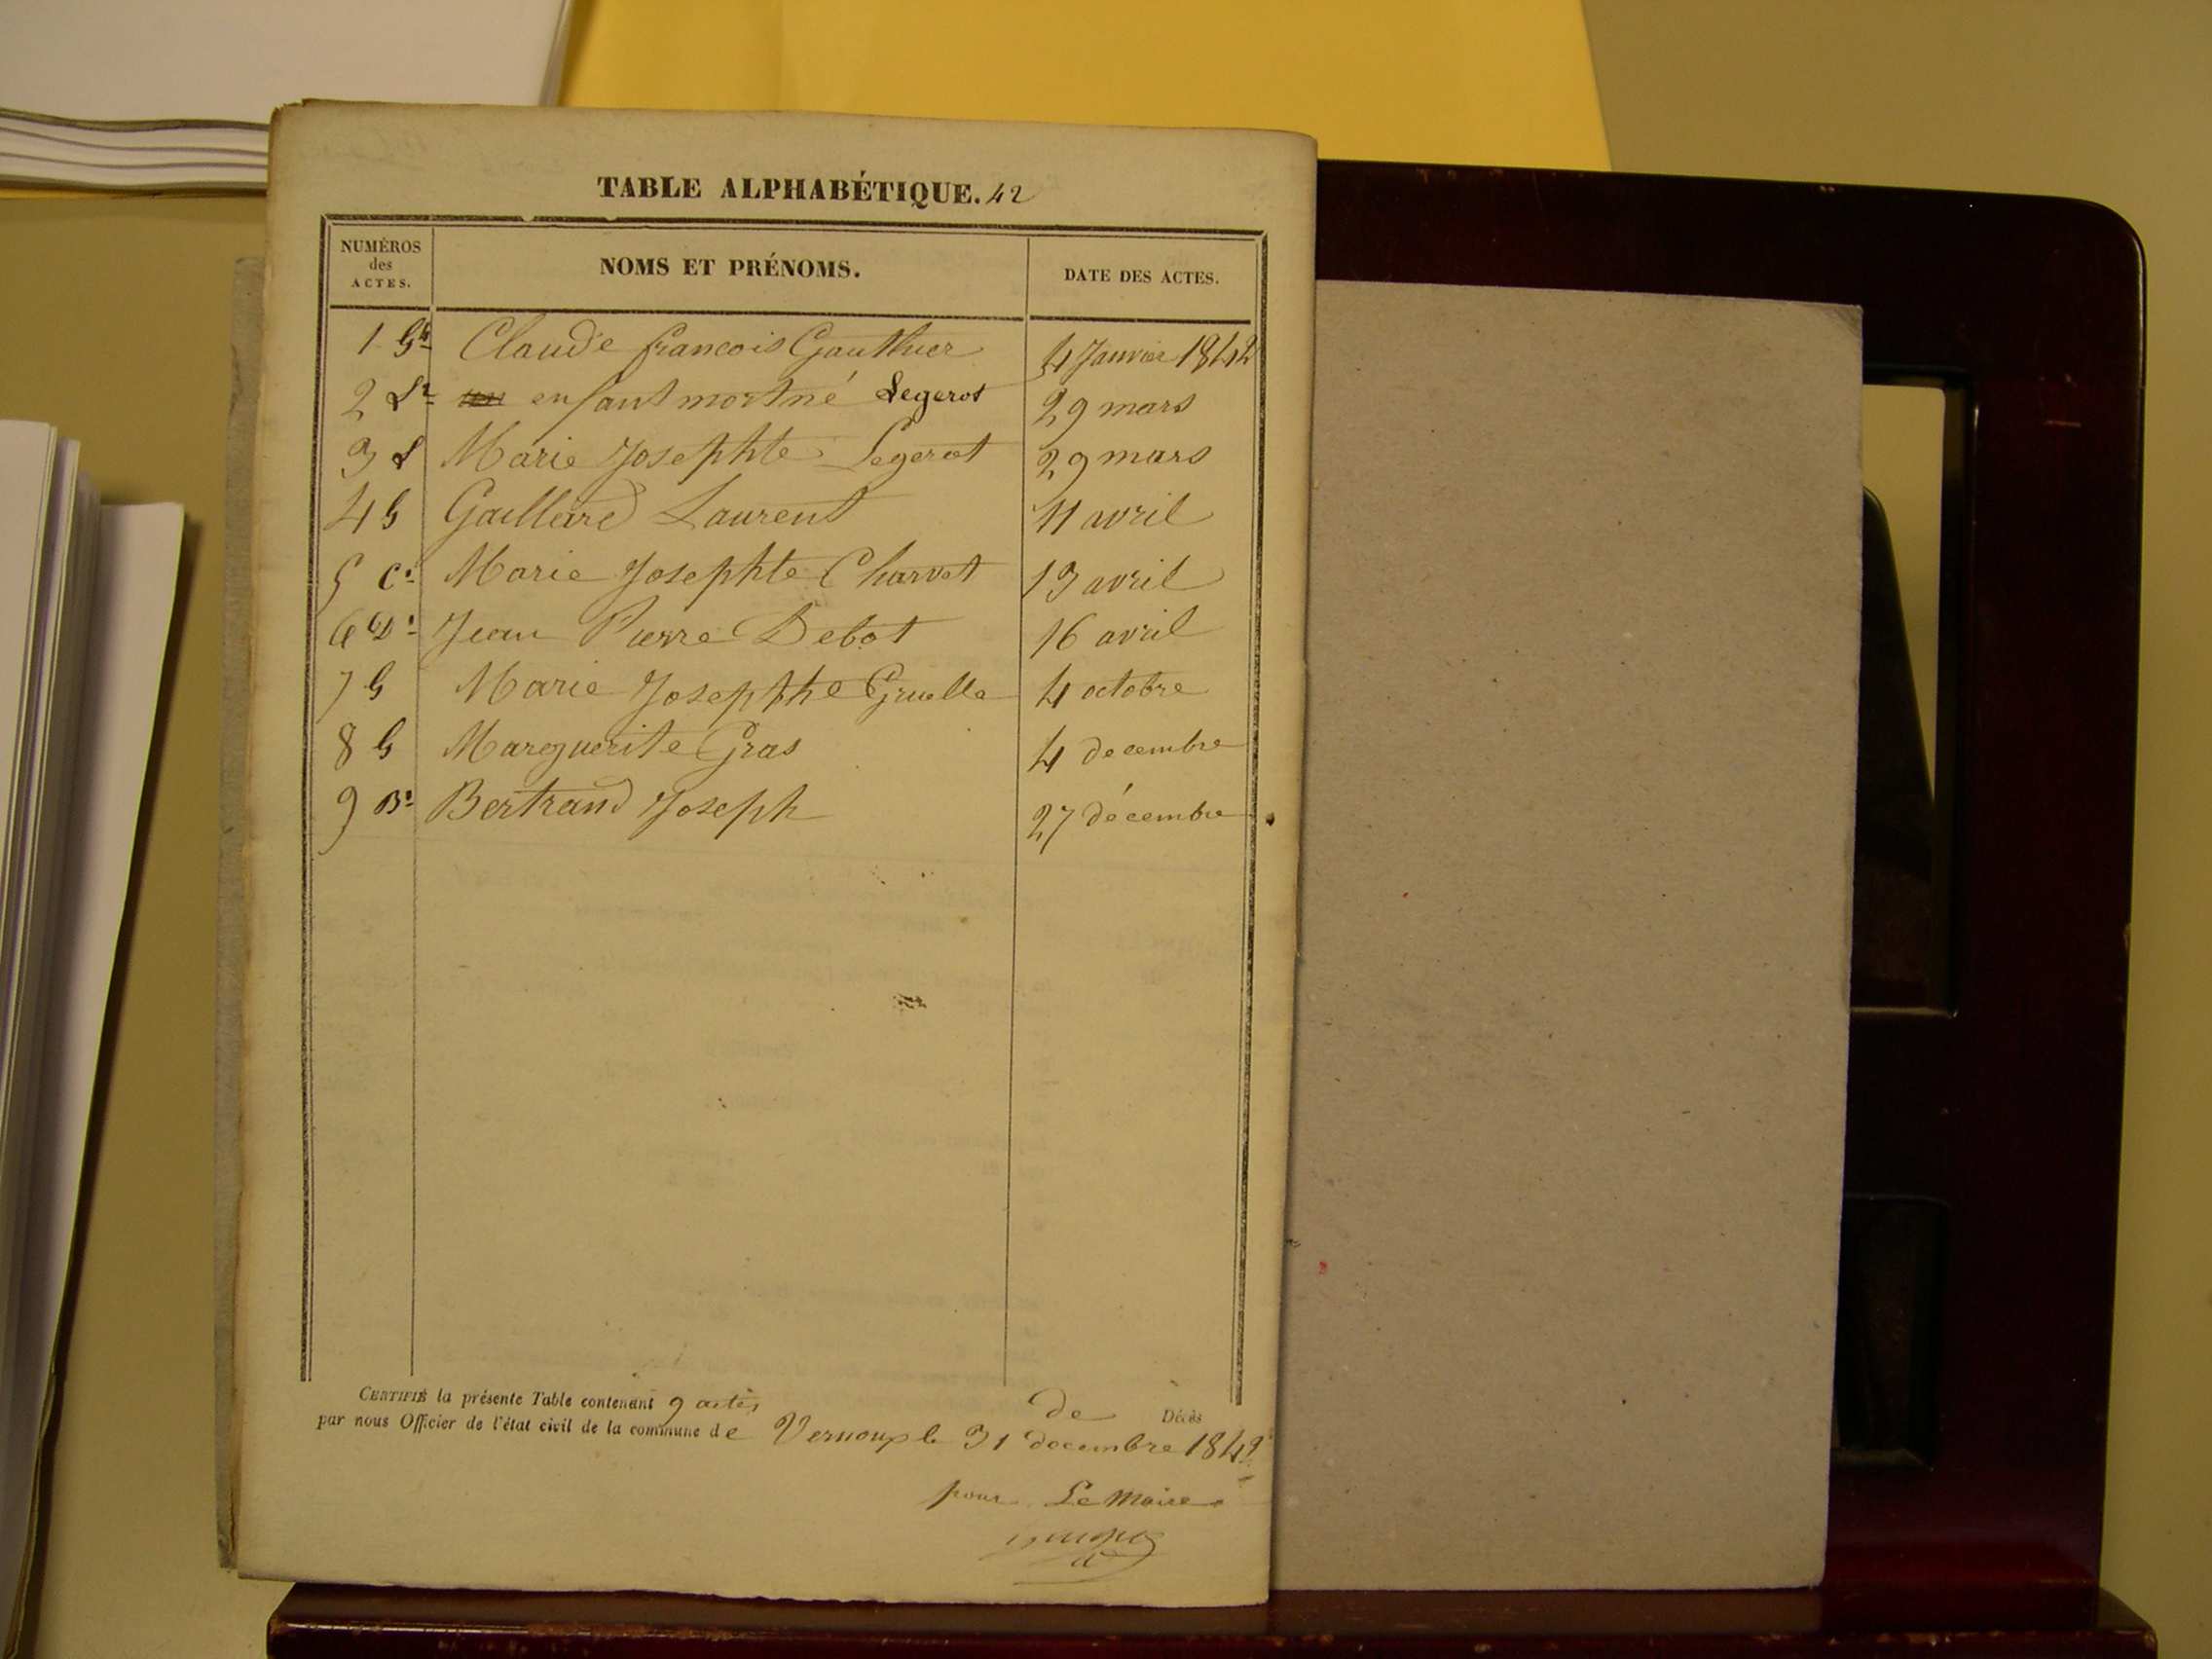 TABLE ALPHABÉTIQUE. 42
NUMÉROS des ACTES. NOMS ET PRÉNOMS. DATE DES ACTES.
1 Gr Claude francois Gauthier 4 Janvier 1842
2 Lt enfant mort né Legerot 29 mars
3 L Marie Josephte Legerot 29 mars
4 G Gaillard Laurent 11 avril
5 C. Marie Josephte Charvet 13 avril
6 D. Jean Pierre Debot 16 avril
7 G Marie Josephte Gruelle 4 octobre
8 G Marguerite Gras 4 decembre
9 B. Bertrand Joseph 27 décembre
CERTIFIÉ la présente Table contenant 9 actes de Décès
par nous Officier de l'état civil de la commune de Vernoux le 31 decembre 1842
pour Le Maire